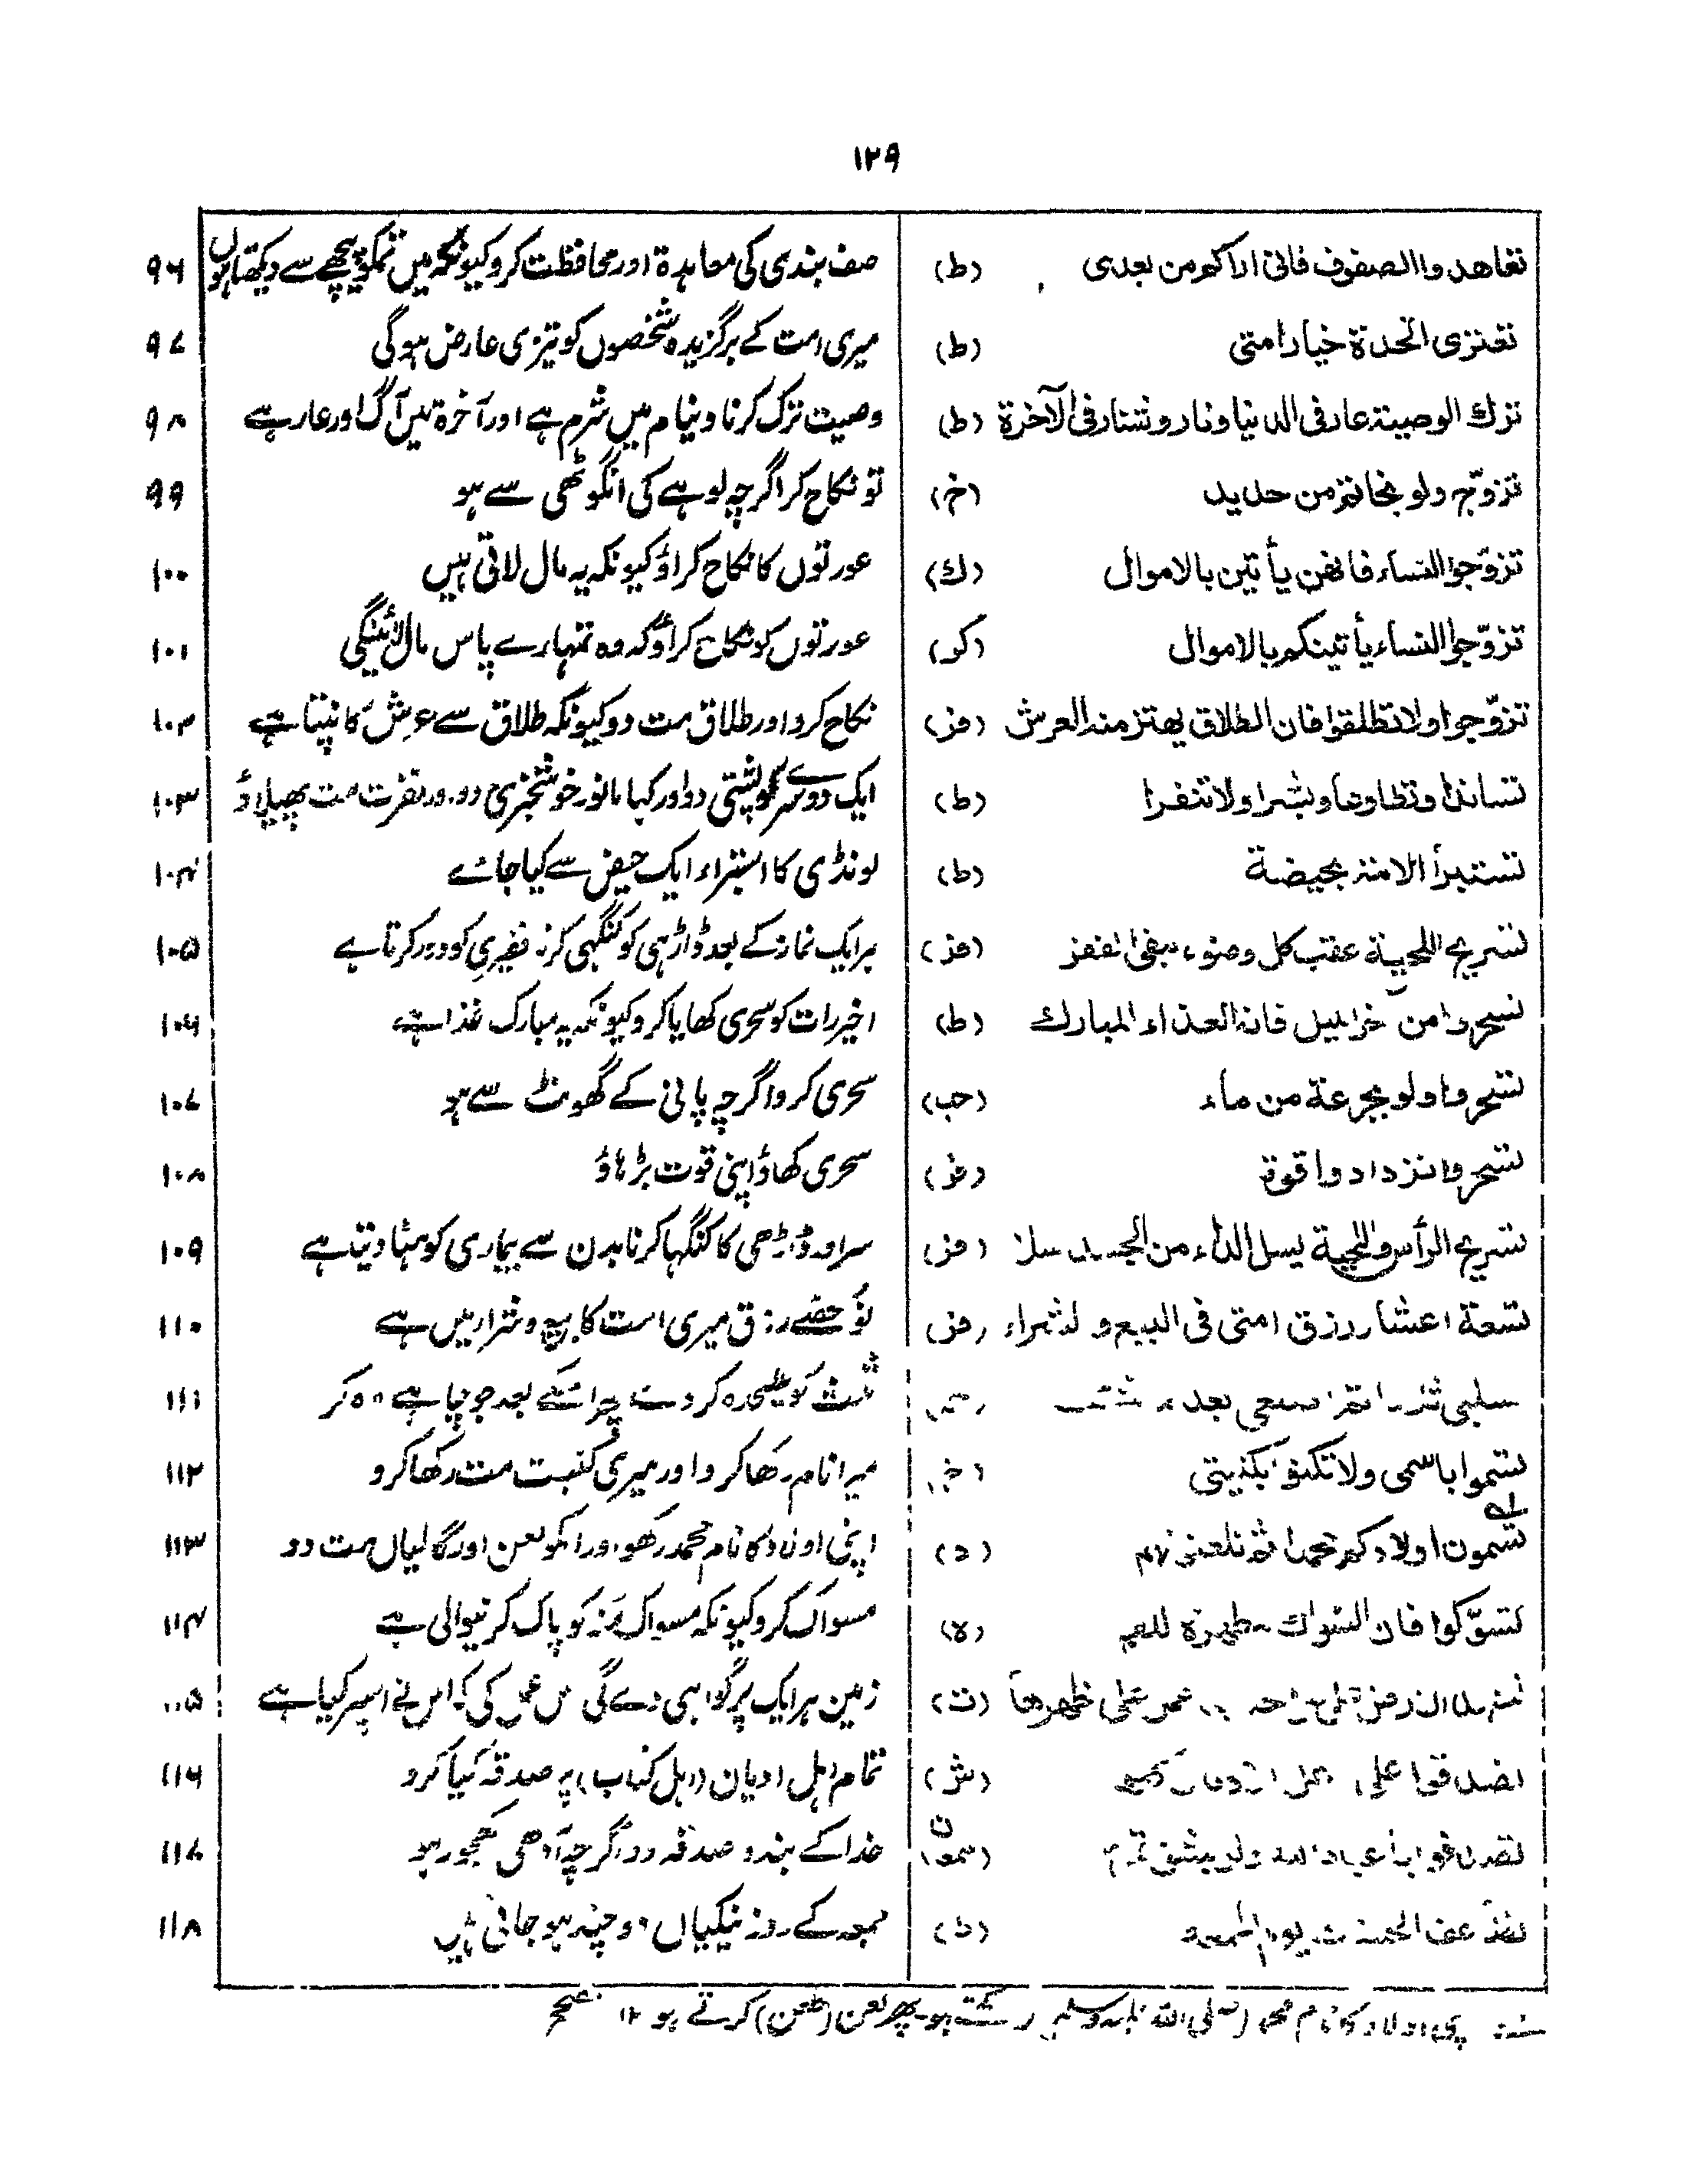 ۱۲۹
تعاهدوا الصفوف فانی اراکم من بعدی (ط) صف بندی کی معاہدۃ اور محافظت کرو کیونکہ میں تمکو پیچھے سے دیکھتا ہوں ۹۶
تعتری الحدة خیار امتی (ط) میری امت کے برگزیدہ شخصوں کو تیزی عارض ہوگی ۹۷
ترك الوصیة عار فی الدنیا ونار وشنار فی الآخرة (ط) وصیت ترک کرنا دنیا میں شرم ہے اور آخرۃ میں آگ اور عار ہے ۹۸
تزوّج ولو بخاتم من حدید (خ) تو نکاح کر اگرچہ لوہے کی انگوٹھی سے ہو ۹۹
تزوّجوا النساء فانهن یأتین بالاموال (ك) عورتوں کا نکاح کراؤ کیونکہ یہ مال لاتی ہیں ۱۰۰
تزوّجوا النساء یأتینکم بالاموال (کر) عورتوں کو نکاح کراؤ کہ وہ تمہارے پاس مال لائینگی ۱۰۱
تزوّجوا ولا تطلقوا فان الطلاق یهتز منه العرش (فز) نکاح کرو اور طلاق مت دو کیونکہ طلاق سے عرش کانپتا ہے ۱۰۲
تساندا وتطاوعا وبشرا ولا تنفرا (ط) ایک دوسرے کو پشتی دو اور کہا مانو خوشخبری دو اور نفرت مت پھیلاؤ ۱۰۳
تستبرأ الامة بحیضة (ط) لونڈی کا استبراء ایک حیض سے کیا جائے ۱۰۴
تسریح اللحیة عقب کل وضوء ینفی الفقر (فز) ہر ایک نماز کے بعد ڈاڑہی کو کنگہی کرنہ فقیری کو دور کرتا ہے ۱۰۵
تسحروا من آخر اللیل فانه الغذاء المبارك (ط) اخیر رات کو سحری کھایا کرو کیونکہ یہ مبارک غذا ہے ۱۰۶
تسحروا ولو بجرعة من ماء (حب) سحری کرو اگرچہ پانی کے گھونٹ سے ہو ۱۰۷
تسحروا تزدادوا قوة (فز) سحری کھاؤ اپنی قوت بڑہاؤ ۱۰۸
تسریح الرأس واللحیة یسل الداء من الجسد سلا (فز) سر اور ڈاڑھی کا کنگہا کرنا بدن سے بیماری کو ہٹا دیتا ہے ۱۰۹
تسعة اعشار رزق امتی فی البیع والشراء (فز) نو حصے رزق میری امت کا بیع و شرا میں ہے ۱۱۰
بعد کو علیحدہ کر بعد جو چاہے وہ کر ۱۱۱
تسموا باسمی ولا تکنوا بکنیتی (خ) میرا نام رکھا کرو اور میری کنیت مت رکھا کرو ۱۱۲
تسمون اولادکم محمدا ثم تلعنونهم (د) اپنی اولاد کا نام محمد رکھو اور انکو لعن اور گالیاں مت دو ۱۱۳
تسوّکوا فان السواك مطهرة للفم (ه) مسواک کرو کیونکہ مسواک منہ کو پاک کرنیوالی ہے ۱۱۴
علی ظهرها (ت) زمین ہر ایک پر گواہی دے گی عمل کی کہ اس نے اسپر کیا ہے
تصدقوا علی (ش) تمام اہل ادیان (اہل کتاب) پر صدقہ کیا کرو ۱۱۶
تصدقوا ولو بشق خدا کے بندو صدقہ دو اگرچہ آدھی کھجور ہو ۱۱۷
تضاعف الحسنات یوم الجمعة جمعہ کے روز نیکیاں دوچند ہو جاتی ہیں ۱۱۸
اولاد کا نام محمد (صلی اللہ علیہ وسلم) رکھتے ہو پھر لعن (طعن) کرتے ہو ۱۲